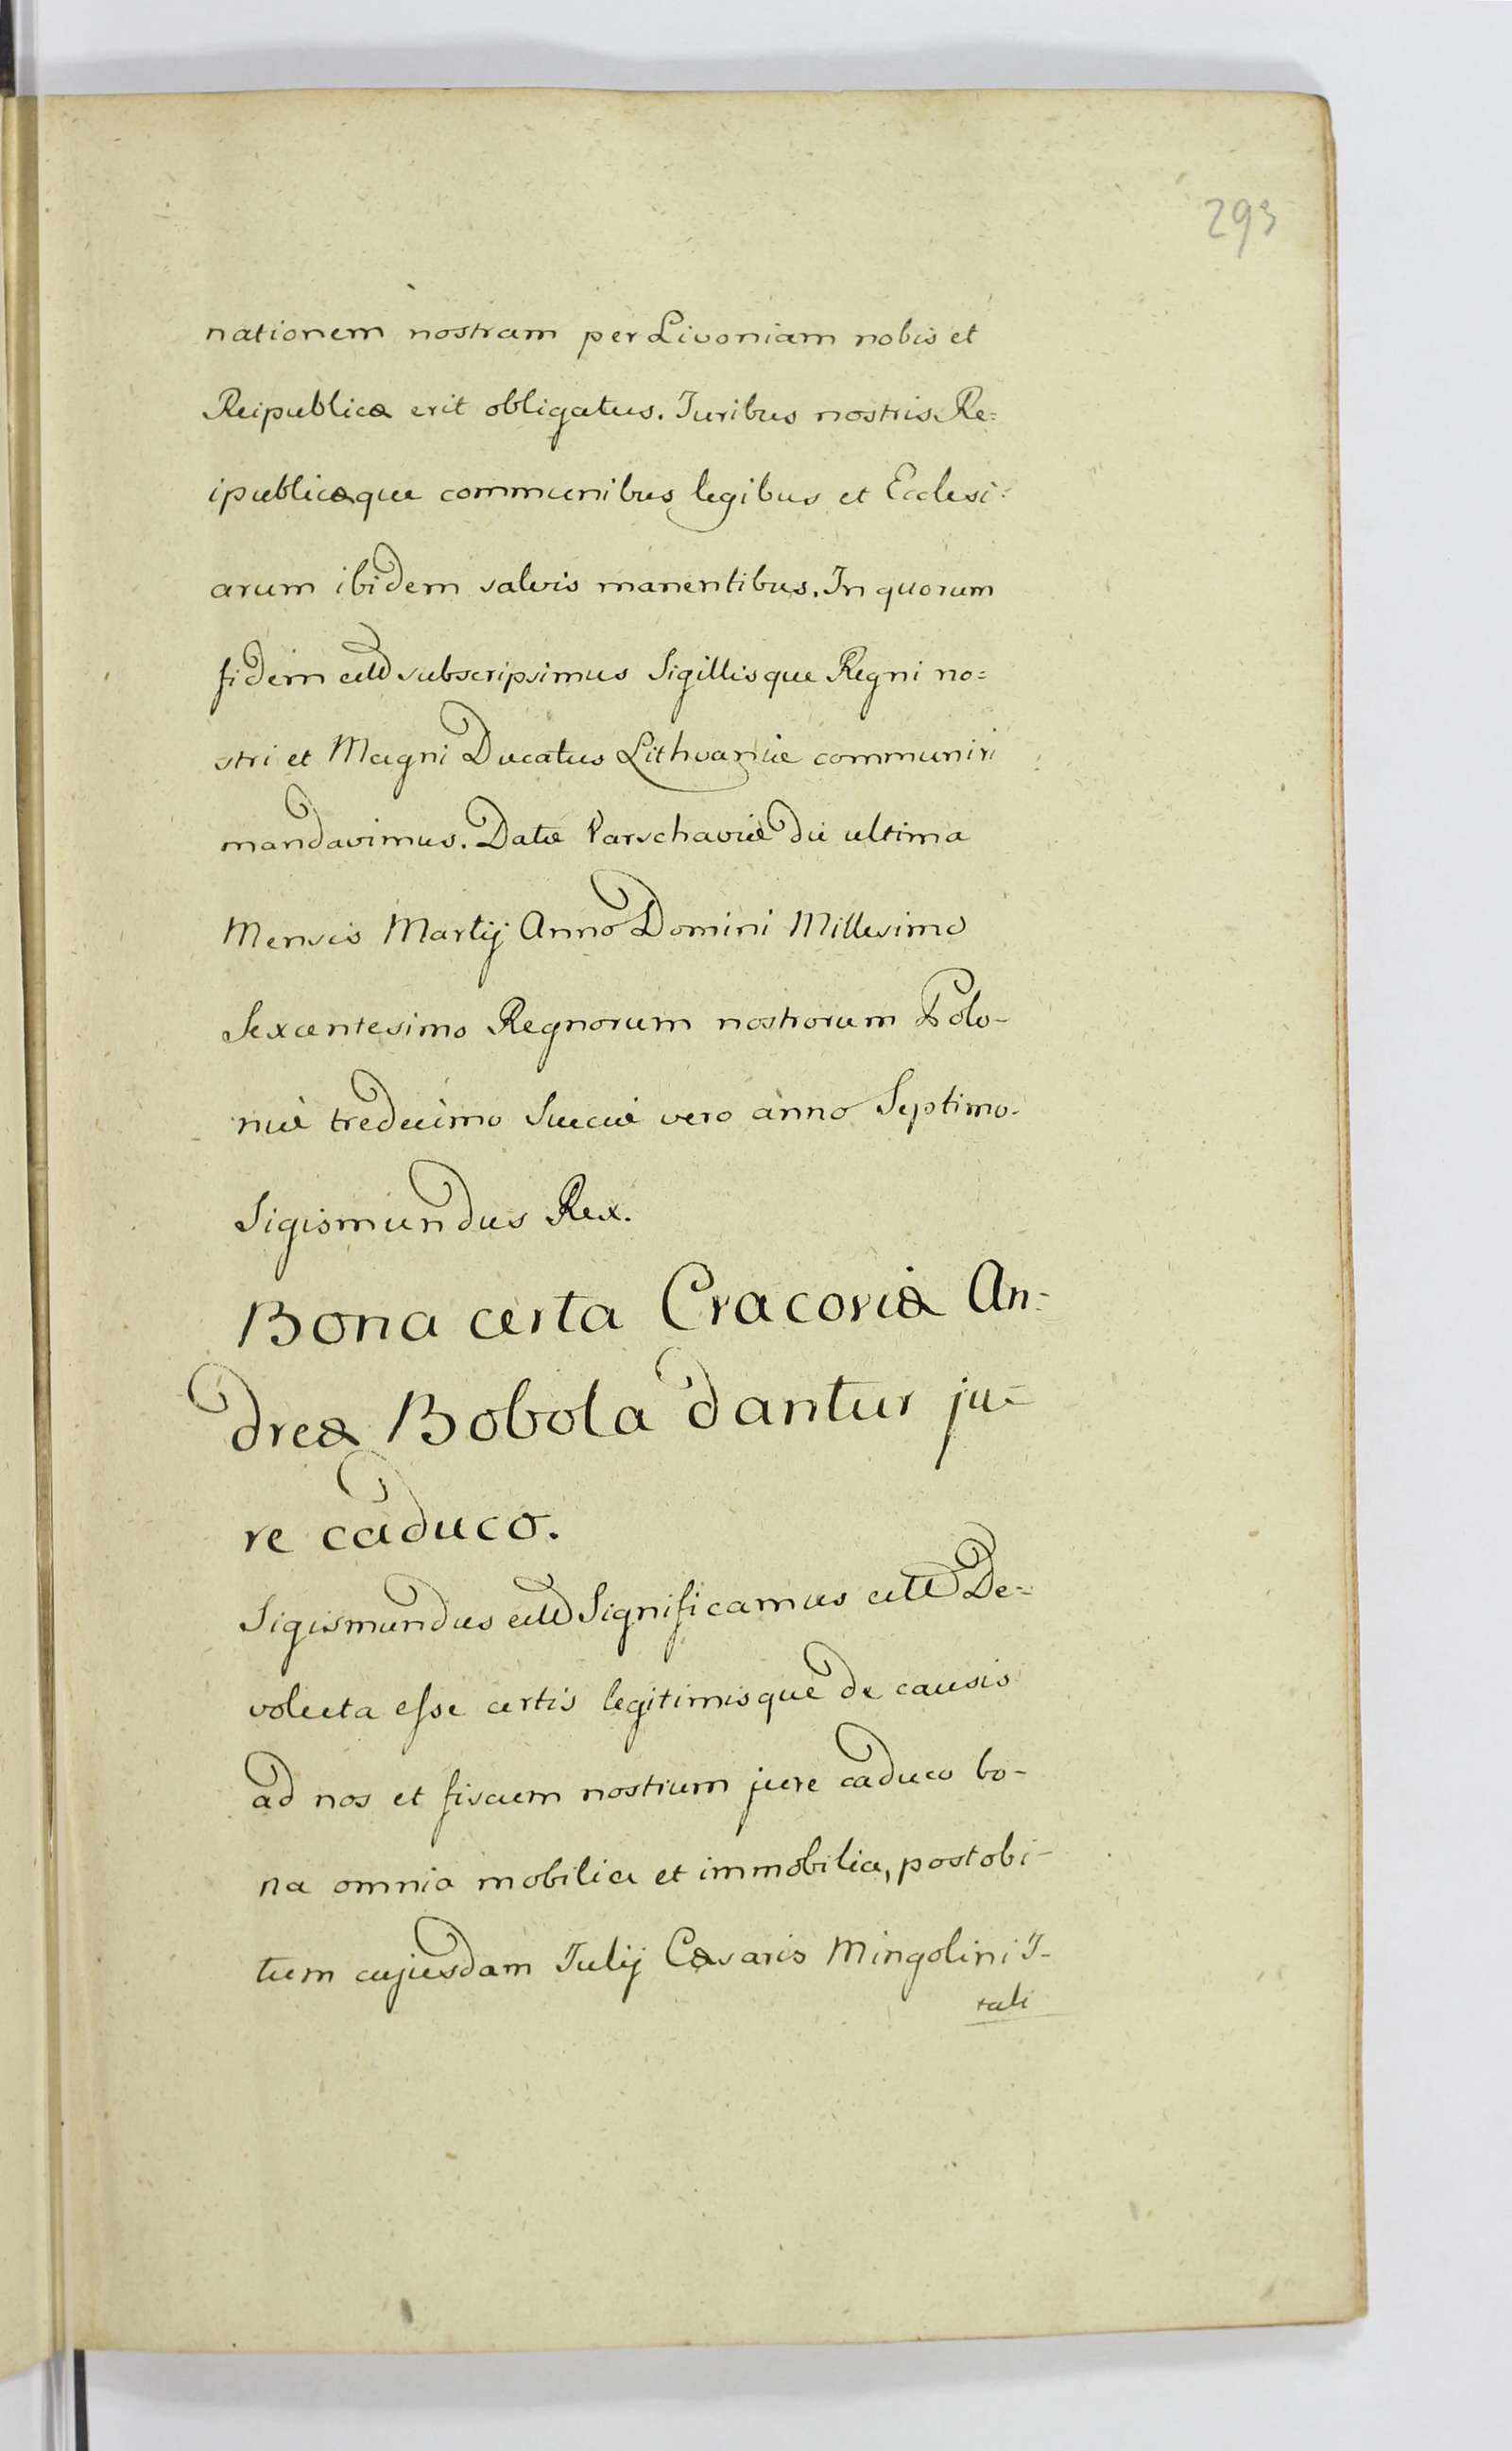 293
nationem nostram per Livoniam nobis et
Reipublicæ erit obligatus. Iuribus nostris Re=
ipublicæque communibus legibus et Ecclesi=
arum ibidem salvis manentibus. In quorum
fidem etc subscripsimus Sigillisque Regni no=
stri et Magni Ducatus Lithvaniæ communiri
mandavimus. Datæ Varschaviæ die ultima
Mensis Martij Anno Domini Millesimo
Sexcentesimo Regnorum nostrorum Polo-
niæ tredecimo Sueciæ vero anno Septimo.
Sigismundus Rex.
Bona certa Cracoviæ An=
dreæ Bobola dantur ju=
re caduco.
Sigismundus etc Significamus etc De=
voluta esse certis legitimisque de causis
ad nos et fiscum nostrum jure caduco bo-
na omnia mobilia et immobilia, post obi-
tum cujusdam Iulij Cæsaris Mingolini I-
tali